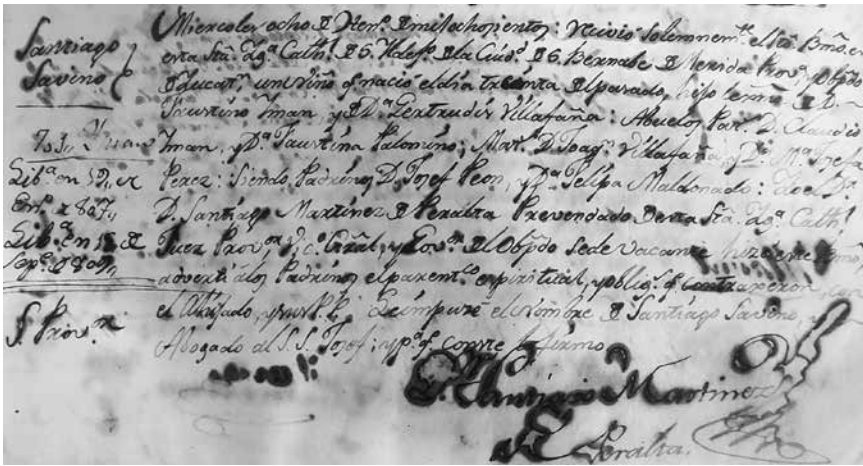 Santiago
Savino
Miercoles ocho de Hen.o de mil ochocientos: recivio solemnem.te el Sto. Bmo. en
esta Sta. Yg.a Cath.l de S. Ildef.o de la Ciud.d de S. Bernabe de Merida Prov.a y Obpdo
de Yucat.n un niño q.e nacio el dia treinta del pasado, hijo lexmo de D.
Faustino Yman, y D.a Gertrudis Villafaña: Abuelos Pat.s D. Claudio
Yman, y D.a Faustina Palomino; Mat.s D. Joaq.n Villafaña, y D.a M.a Josefa
Lib.a en 19,, de
En.o de 807,,
Perez: Siendo Padrinos D. Josef Peon, y D.a Felipa Maldonado: Yo el D.r
D. Santiago Martinez de Peralta Prevendado de esta Sta. Yg.a Cath.l
Lib.a en 15 de
Sep.e de 809,,
Juez Prov.or Vic.o Gral, y Gov.or del Obpdo Sede vacante hize este Bmo,
adverti a los Padrinos el parent.co espiritual, y oblig.s q.e contraxeron con
S. Prov.or
el Ahijado, y sus P.P. Le impuse el nombre de Santiago Savino, y
Abogado al S.S. Josef; y p.a q.e conste lo firmo
D. Santiago Martinez
de Peralta.